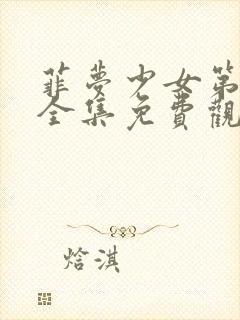 菲夢少女第
全集免費觀
焓淇